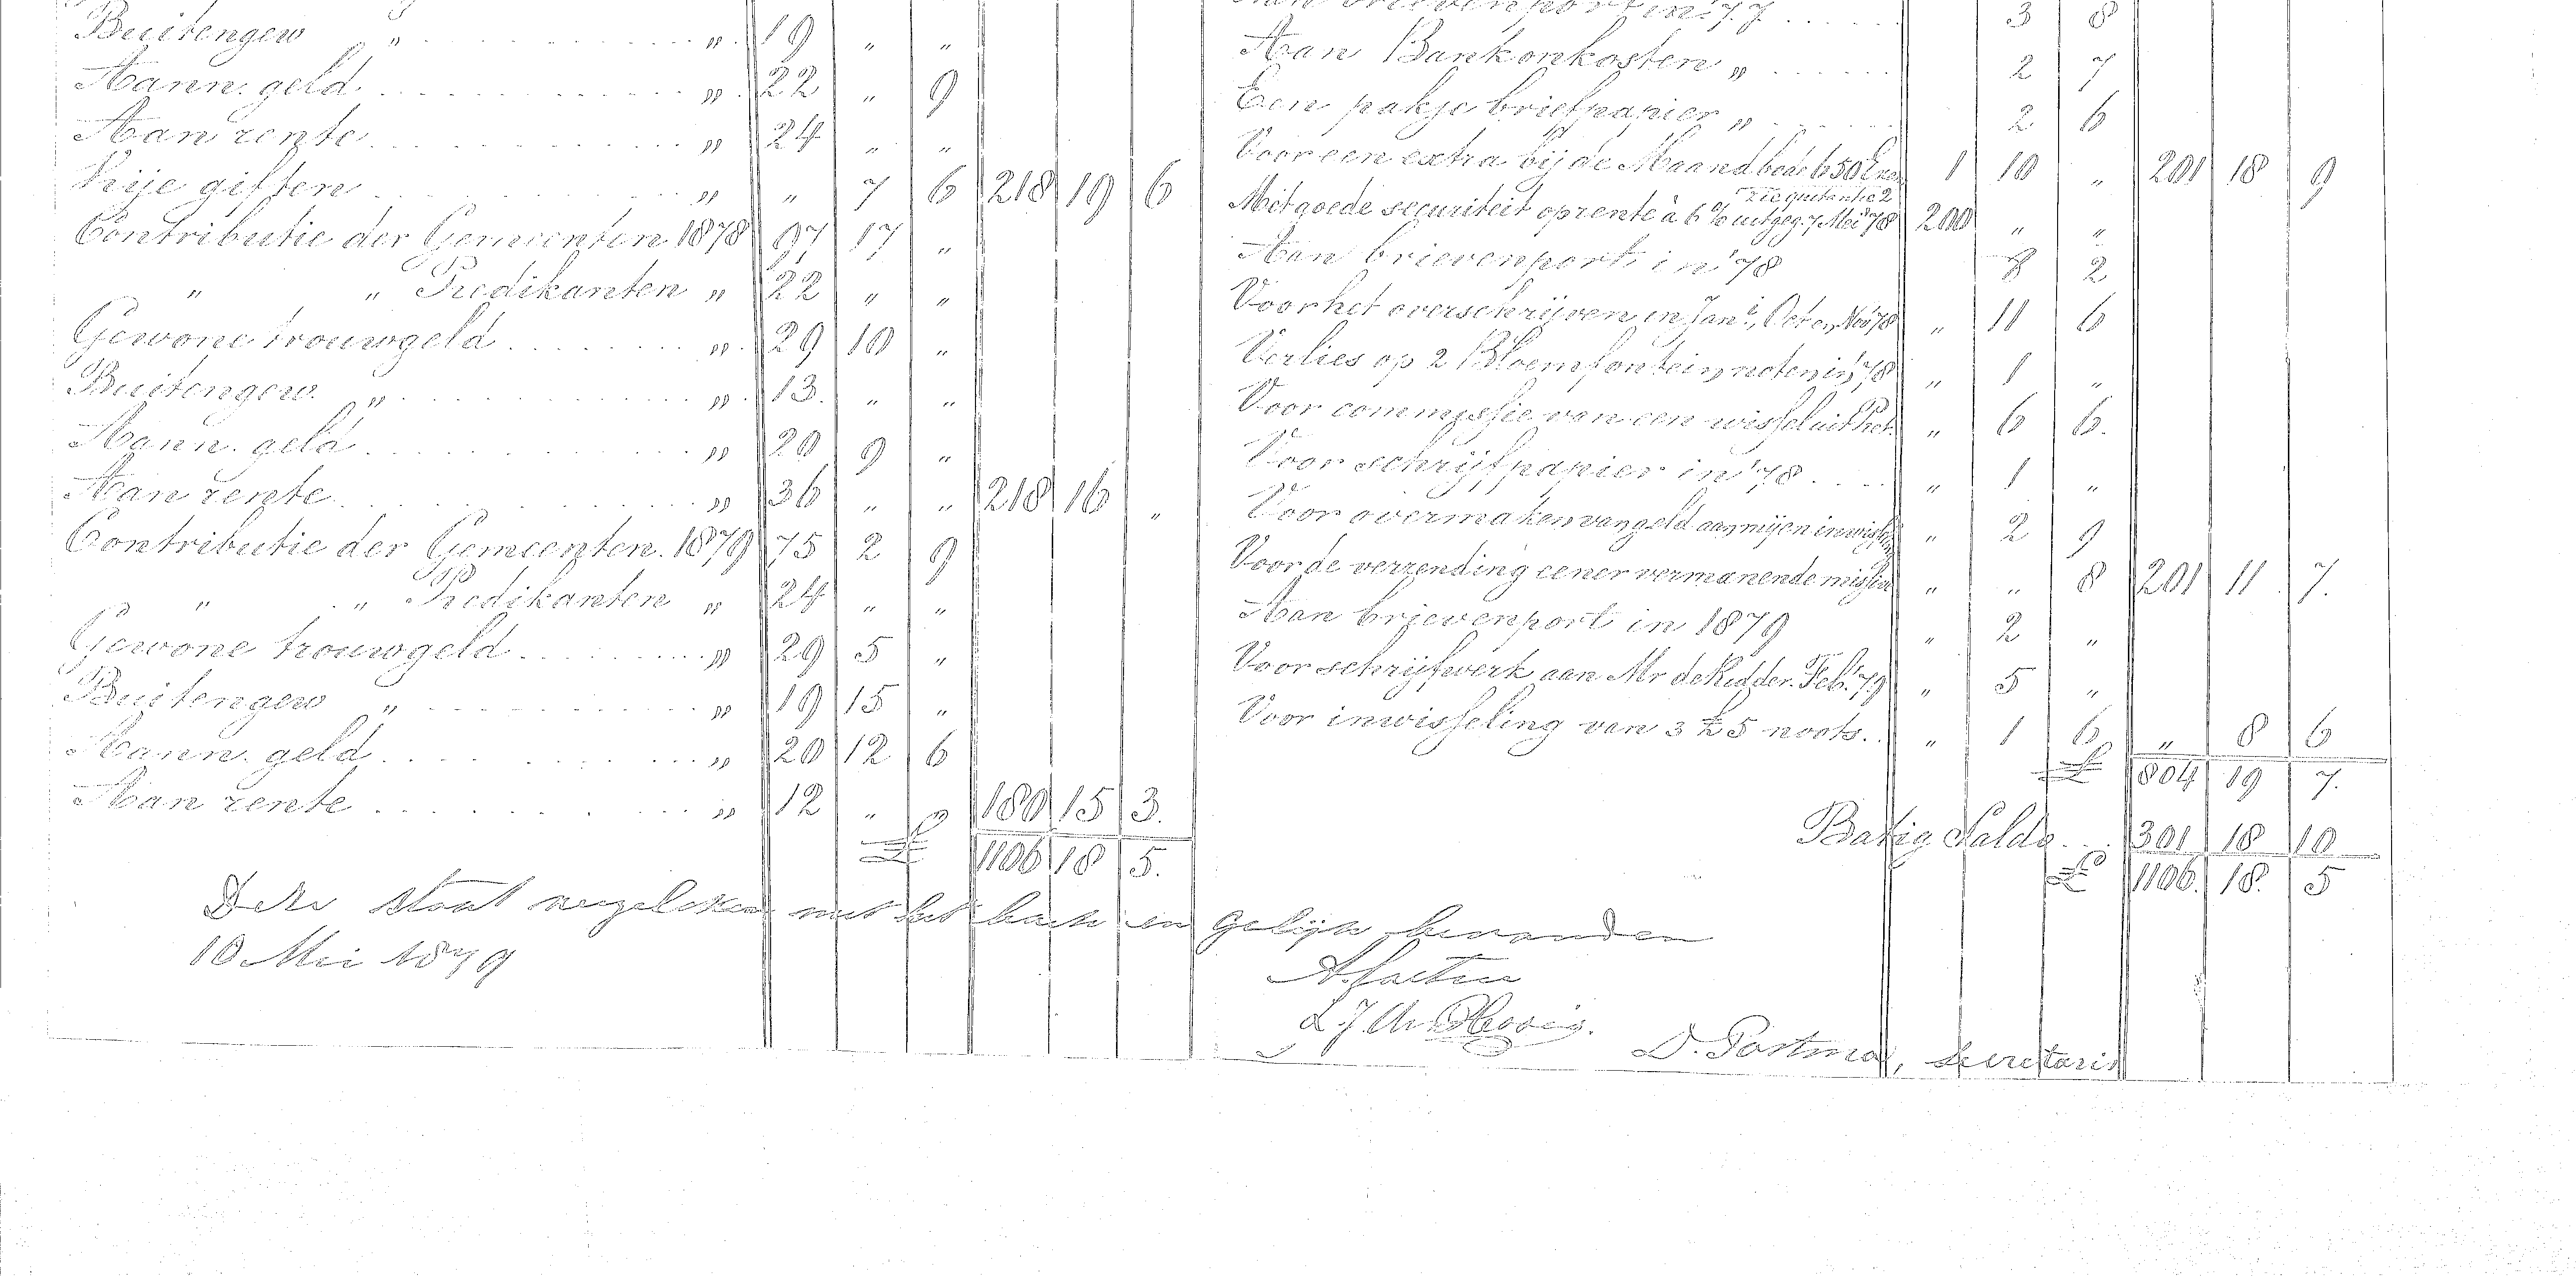 Buitengew " . . . . " 19 " "
Aann. geld . . . . " 22 " 9
Aan rente . . . . " 24 " "
Vrije giften . . . . " " 7 6 218 19 6
Contributie der Gemeenten 1878 97 17 "
" " Predikanten " 22 " "
Gewone trouwgeld . . . . " 29 10 "
Buitengew. " . . . . " 13. " "
Aann. geld . . . . " 20 9 "
Aan rente . . . . " 36 " " 218 16 "
Contributie der Gemeenten. 1879 75 2 9
" " Predikanten " 24 " "
Gewone trouwgeld . . . . " 29 5 "
Buitengew " . . . . " 19 15 "
Aann. geld . . . . " 20 12 6
Aan rente . . . . " 12 " " 180 15 3.
£ 1106 18 5.
Aan brievenport in '77 . . . . 3 8
Aan Bankonkosten " . . . . 2 7
Een pakje briefpapier " . . . . 2 6
Voor een extra bij de Maandbode 1 10 " 201 18 9
zie quitantie 2
Met goede securiteit op rente à 6 % uitgeg. 7 Mei '78 200 " "
Aan brievenport in '78 8 2
Voor het overschrijven in Jan., Oct en Nov '78 " 11 6
Verlies op 2 Bloemfontein noten in '78 " 1 "
Voor commissie van een wissel uit het " 6 6.
Voor schrijfpapier in '78 . . . . " 1 "
Voor overmaken van geld aan mij en inwissel " 2 9
Voor de verzending eener vermanende missive " " 8 201 11 7.
Aan brievenport in 1879 " 2 "
Voor schrijfwerk aan Mr de Ridder. Feb. '79 " 5 "
Voor inwisseling van 3 £5 noots. . " 1 6 " 8 6
£ 804 19 7.
Batig Saldo . . 301 18 10
£ 1106. 18. 5
Deze staat vergeleken met het boek en gelijk bevonden
10 Mei 1879
D. Postma, Secretaris